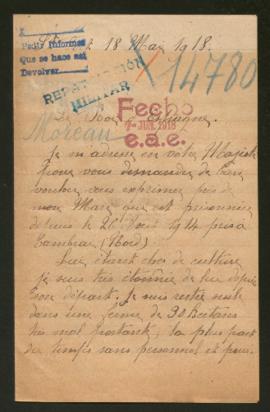 18 Mai 1918.
Pedir Informes
Que se hace así
Devolver
14780
REPATRIACIÓN
MILITAR
Moreau
Le Roi d'Espagne.
Fecho
7 - JUN. 1918
e.a.e.
Je m adresse en votre Majesté
pour vous demander de bien
vouloir vous
mon Mari qui est prisonnier
depuis le 26 Août 1914 pris à
Cambrai (Nord)
Lui étant chef de culture
je suis très de lui depuis
son départ. Je suis restée seule
dans une ferme de 90 Hectares
très mal la plus part
du temps sans personnel et pour